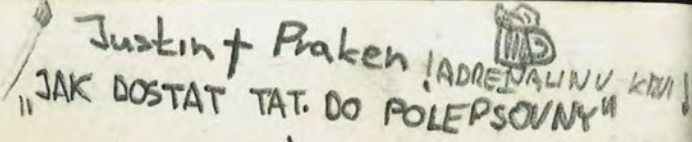 Justin + Praken
! ADRENALINU KRVI !
"JAK DOSTAT TAT. DO POLEPSOVNY"